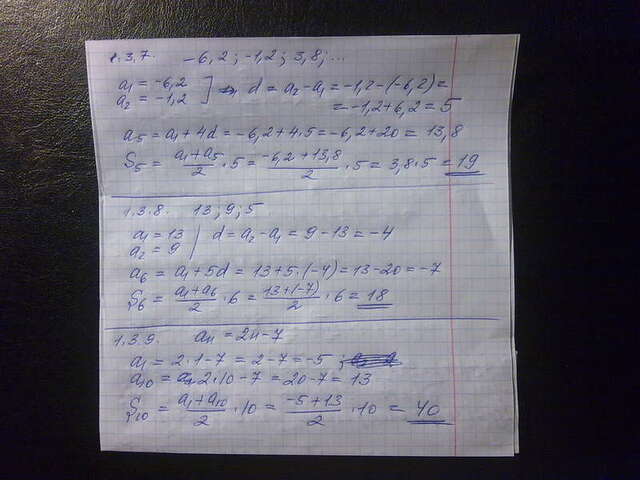 1.3.7. -6,2; -1,2; 3,8; ...
a1 = -6,2 ] => d = a2 - a1 = -1,2 - (-6,2) =
a2 = -1,2 = -1,2 + 6,2 = 5
a5 = a1 + 4d = -6,2 + 4·5 = -6,2 + 20 = 13,8
S5 = (a1 + a5)/2 · 5 = (-6,2 + 13,8)/2 · 5 = 3,8·5 = 19
1.3.8. 13; 9; 5
a1 = 13 | d = a2 - a1 = 9 - 13 = -4
a2 = 9
a6 = a1 + 5d = 13 + 5·(-4) = 13 - 20 = -7
S6 = (a1 + a6)/2 · 6 = (13 + (-7))/2 · 6 = 18
1.3.9. an = 2n - 7
a1 = 2·1 - 7 = 2 - 7 = -5 ;
a10 = 2·10 - 7 = 20 - 7 = 13
S10 = (a1 + a10)/2 · 10 = (-5 + 13)/2 · 10 = 40